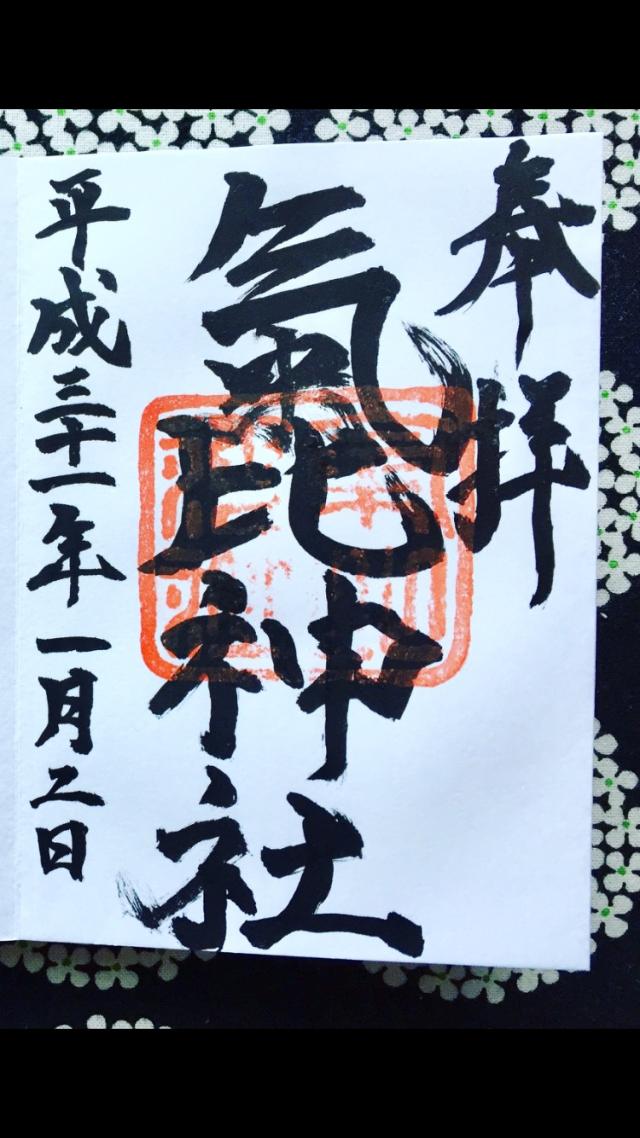 奉拝
氣比神社
平成三十一年一月二日